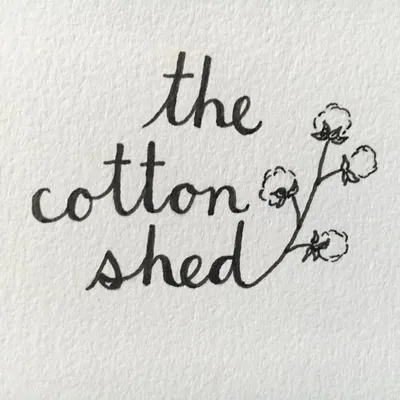 the
cotton
shed